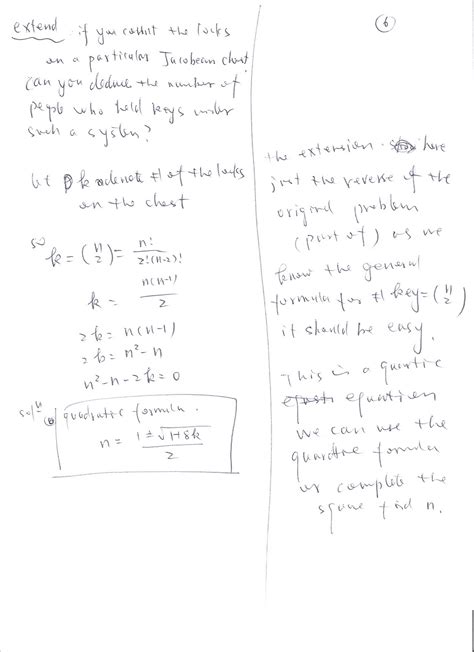 extend if you count the locks
on a particular Jacobean chest
can you deduce the number of
people who held keys under
such a system?
let k denote # of the locks
on the chest
so k = (n 2) = n! / 2!(n-2)!
k = n(n-1) / 2
2k = n(n-1)
2k = n² - n
n² - n - 2k = 0
sol/n quadratic formula.
n = 1 ± √1+8k / 2
6
the extension here
just the reverse of the
original problem
(part of) as we
know the general
formula for # key = (n 2)
it should be easy.
This is a quartic
equation
we can use the
formula
or complete the
square find n.